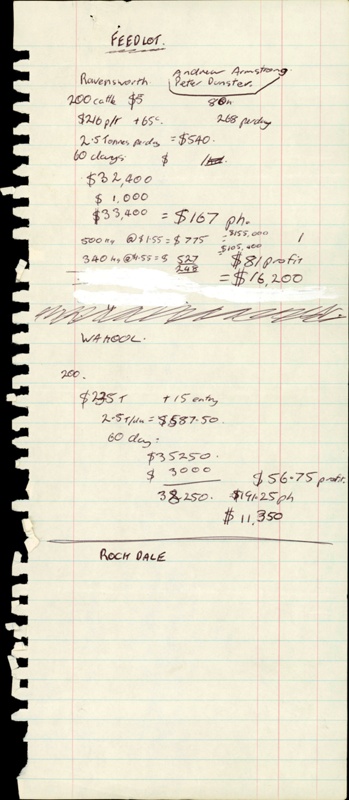 FEEDLOT.
Ravensworth Andrew Armstrong
Peter Dunster.
200 cattle $5 80h
$216 p/t +65c. 268 perday
2.5 tonnes perday = $540.
60 days $
$32,400
$ 1,000
$33,400 = $167 ph.
500 kg @ $1.55 = $775 = $155,000
$105,400
340 kg @ $1.55 = $ 527 $81 profit
248 = $16,200
WAHOOL.
200.
$235 T + 15 entry
2.5T/day = $587.50.
60 day:
$35250.
$ 3000 $56.75 profit.
38250. $191.25 ph
$ 11,350
ROCK DALE